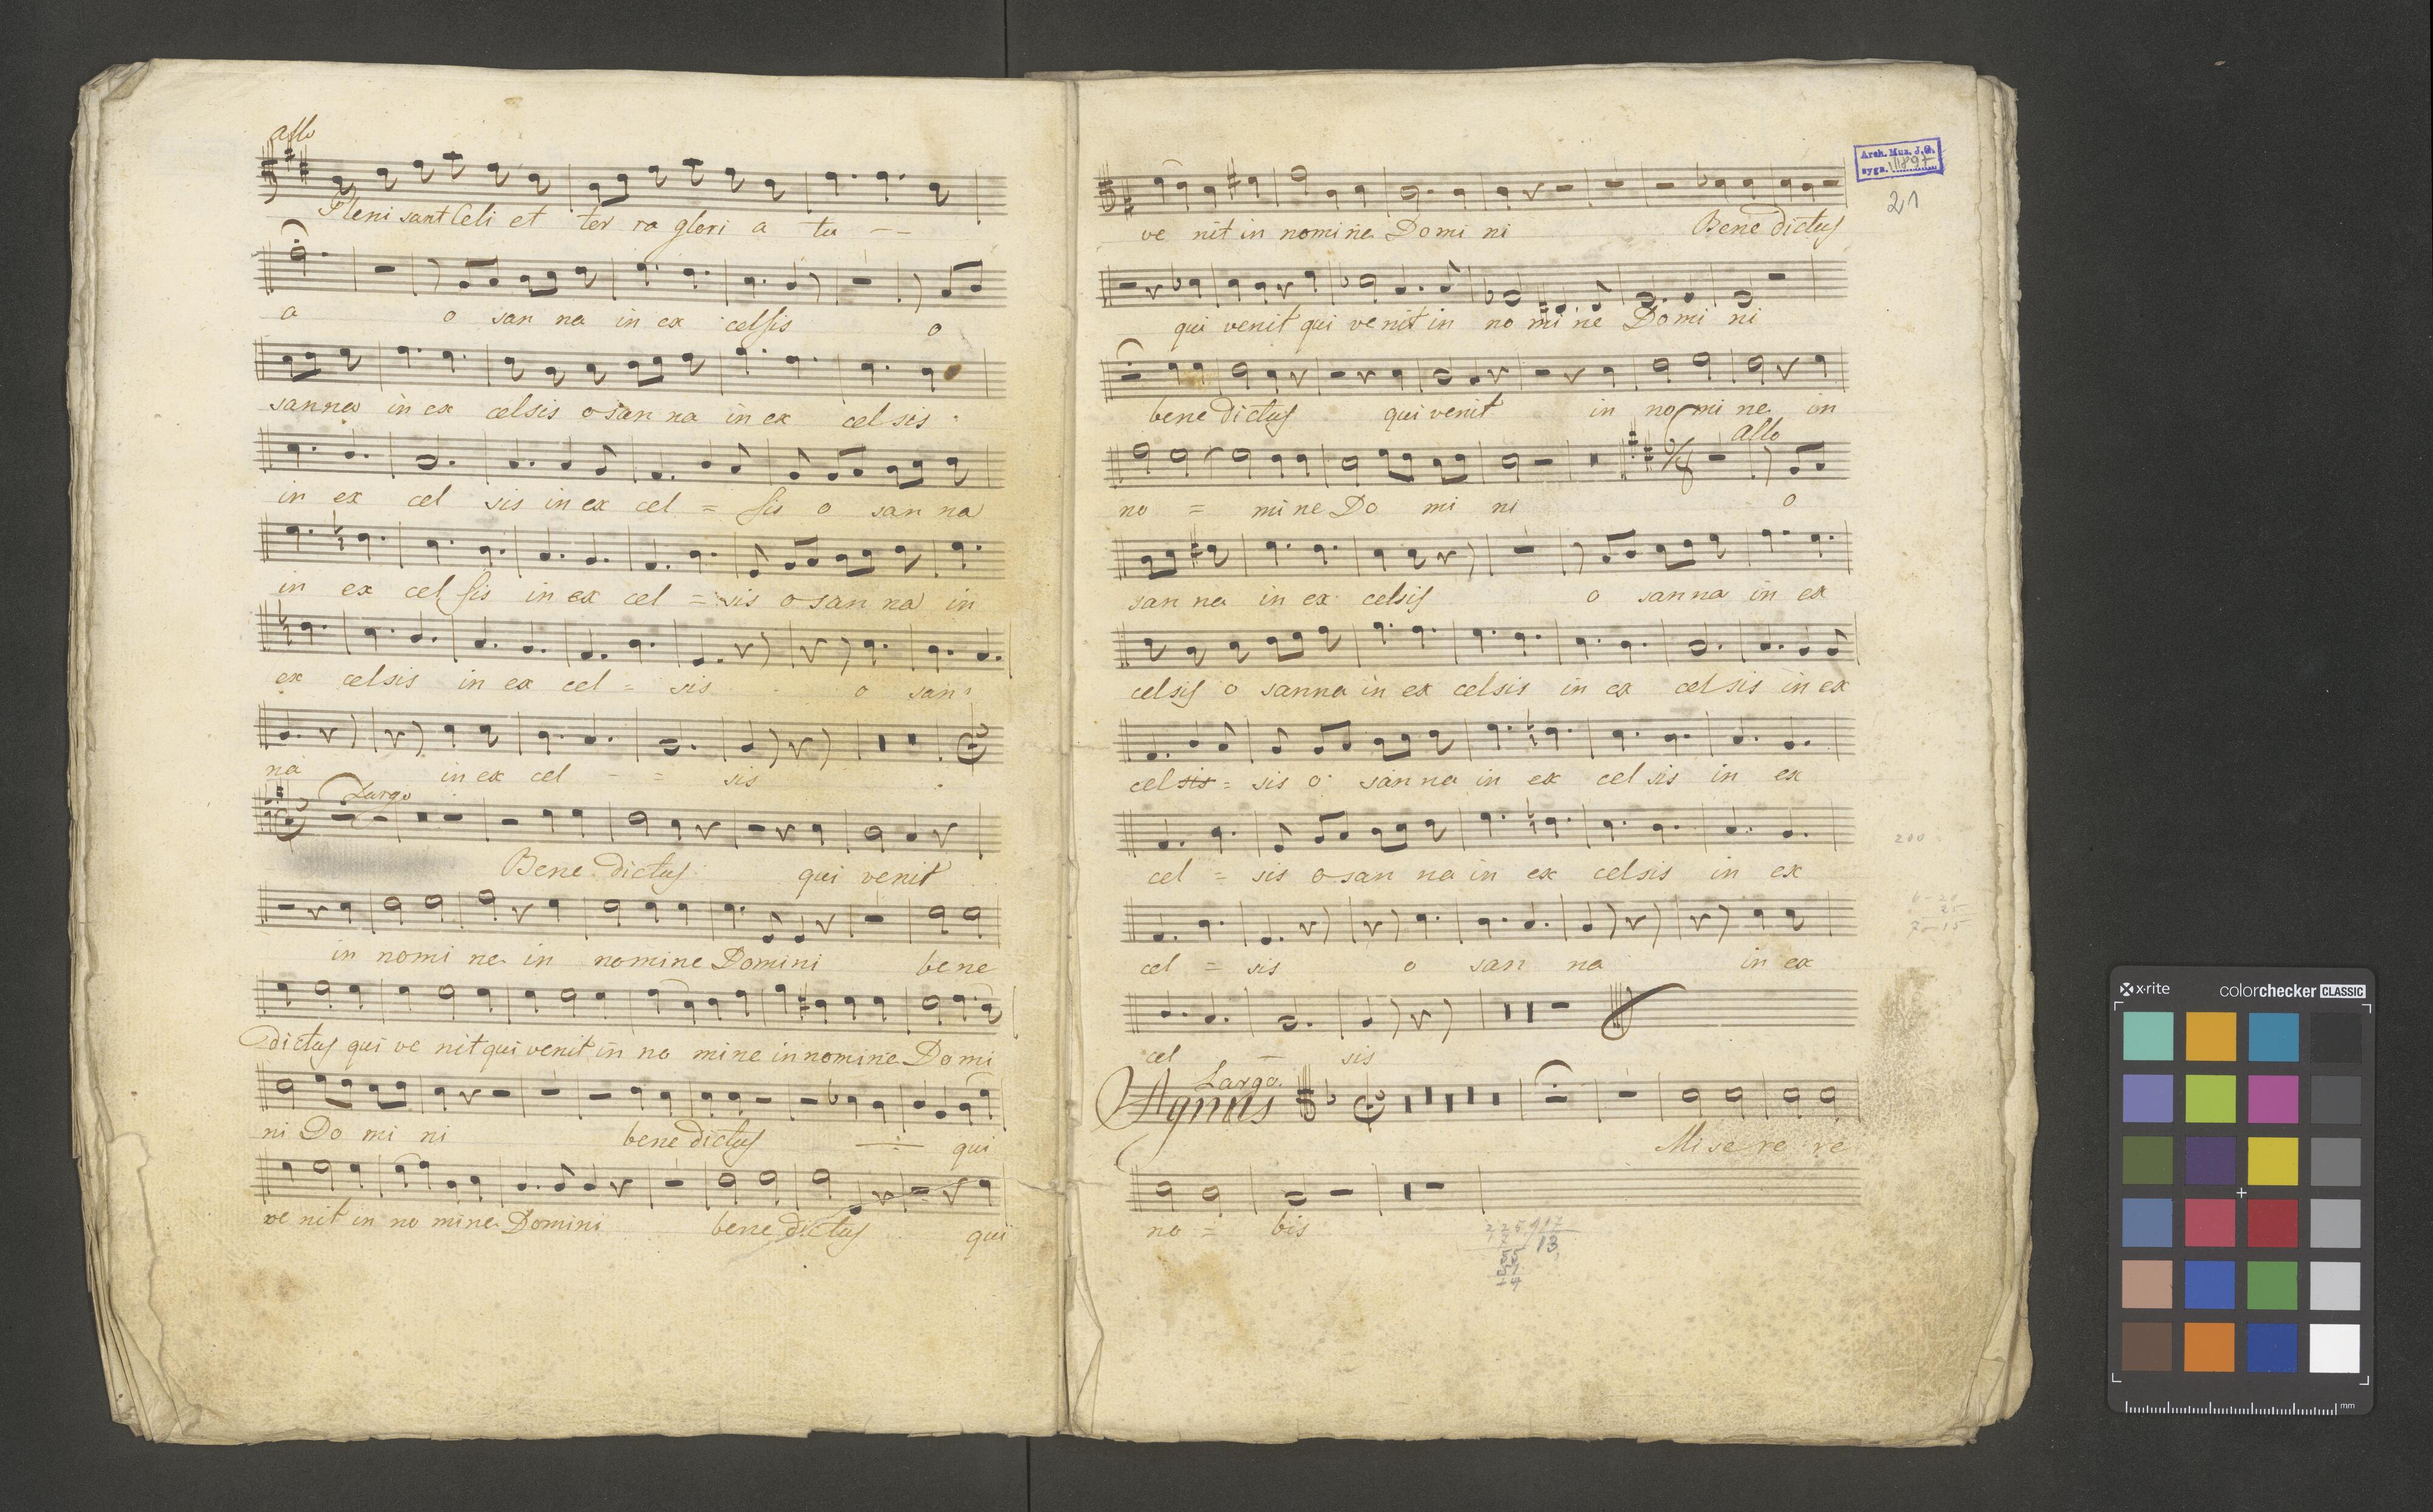 allo
Pleni sant Celi et ter ra glori a tu - -
a o san na in ex celsis o
sanna in ex celsis o san na in ex cel sis .
in ex cel sis in ex cel = sis o san na
in ex cel sis in ex cel = sis o san na in
ex celsis in ex cel = sis o san
na in ex cel - = sis
Largo
Bene dictus qui venit
in nomi ne in nomine Domini bene
dictus qui ve nit qui venit in no mine in nomine Domi
ni Do mi ni bene dictus qui
ve nit in no mine Domini bene dictus qui
Arch. Muz. J.G.
sygn.
21
ve nit in nomine Domi ni Bene dictus
qui venit qui ve nit in no mi ne Domi ni
bene dictus qui venit in no mi ne in
allo
no = mi ne Do mi ni o
san na in ex celsis o sanna in ex
celsis o sanna in ex celsis in ex cel sis in ex
cel sis = sis o san na in ex cel sis in ex
200
cel = sis o san na in ex celsis in ex
cel = sis o san na in ex
cel - sis
Largo
Agnus
Mi se re re
no = bis
13
x-rite colorchecker CLASSIC
mm